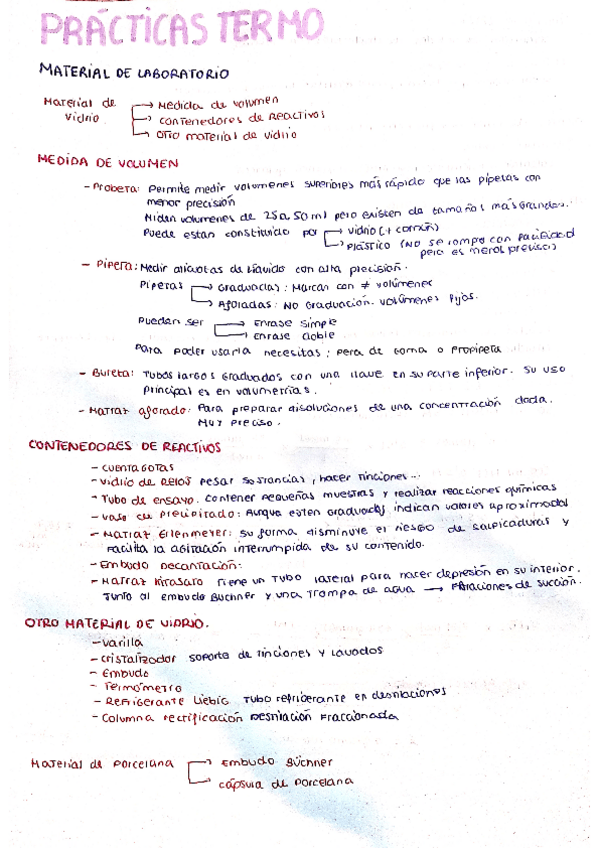 PRÁCTICAS TERMO
MATERIAL DE LABORATORIO
Material de vidrio → Medida de volumen
→ contenedores de Reactivos
→ Otro material de vidrio
MEDIDA DE VOLUMEN
- Probeta: Permite medir volumenes superiores más rápido que las pipetas con
menor precisión
Miden volumenes de 25 a 50 ml pero existen de tamaños más grandes.
Puede estar constituido por → vidrio (+ común)
→ plástico (No se rompe con facilidad
pero es menos preciso)
- Pipeta: Medir alícuotas de líquido con alta precisión.
Pipetas → Graduadas: Marcas con ≠ volúmenes
→ Aforadas: No Graduación. volúmenes fijos.
Pueden ser → Enrase simple
→ enrase doble
Para poder usarla necesitas: pera de goma o propipeta
- Bureta: Tubos largos Graduados con una llave en su parte inferior. Su uso
principal es en volumetrías.
- Matraz aforado: Para preparar disoluciones de una concentración dada.
Muy preciso.
CONTENEDORES DE REACTIVOS
- cuentagotas
- vidrio de reloj pesar sustancias, hacer tinciones...
- Tubo de ensayo. contener pequeñas muestras y realizar reacciones químicas
- vaso de precipitado: Aunque estén graduados indican valores aproximados
- Matraz Erlenmeyer: su forma disminuye el riesgo de salpicaduras y
facilita la agitación interrumpida de su contenido.
- Embudo Decantación:
- Matraz Kitasato Tiene un tubo lateral para hacer depresión en su interior.
Junto al embudo Buchner y una trompa de agua → Filtraciones de succión.
OTRO MATERIAL DE VIDRIO.
- varilla
- cristalizador soporte de tinciones y lavados
- Embudo
- Termómetro
- Refrigerante Liebig Tubo refrigerante en destilaciones
- Columna rectificación Destilación Fraccionada
Material de porcelana → Embudo Büchner
→ cápsula de porcelana